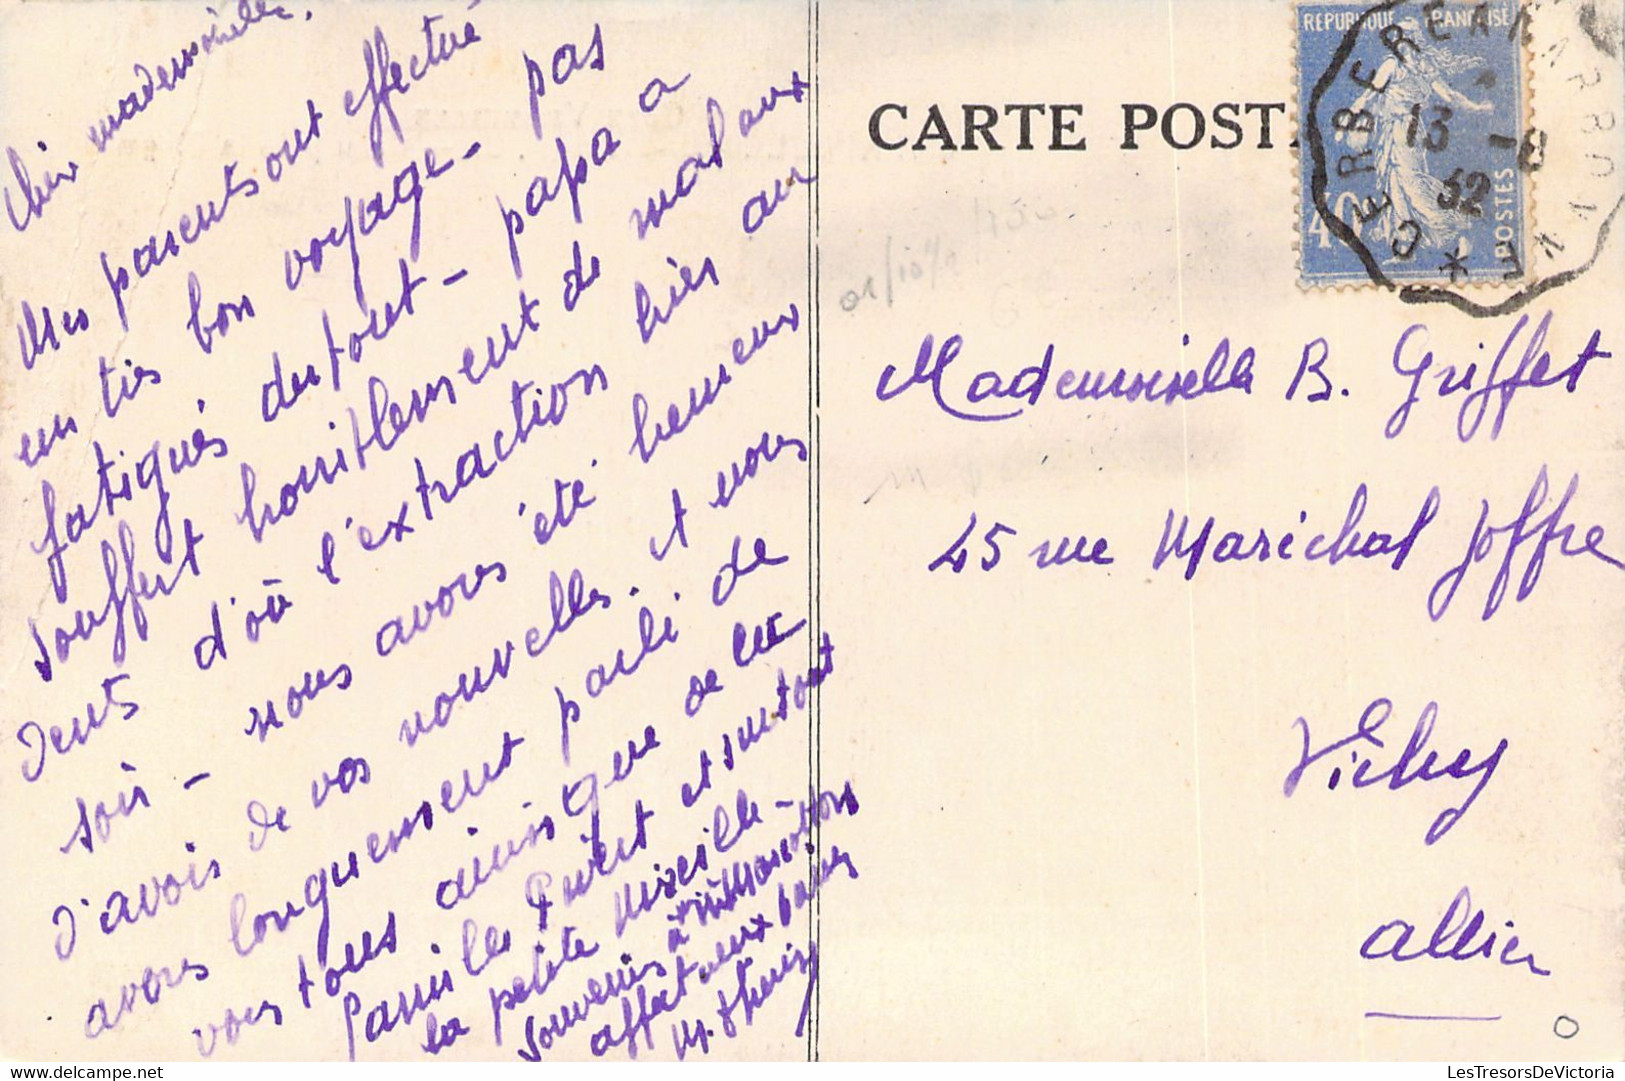 Chère mademoiselle,
Mes parents ont effectué
un très bon voyage - pas
fatigués du tout - papa a
souffert horriblement de mal aux
dents d'où l'extraction hier au
soir - nous avons été heureux
d'avoir de vos nouvelles. et nous
avons longuement parlé de
vous tous ainsi que de la
famille et surtout
la petite Mireille -
Souvenirs à
affectueux baisers
M. Thérèse
CARTE POSTA
RÉPUBLIQUE FRANÇAISE
40
POSTES
CERBERE A NARBONNE
13 -8
32
Mademoiselle B. Griffet
45 rue Maréchal Joffre
Vichy
Allier
LesTresorsDeVictoria